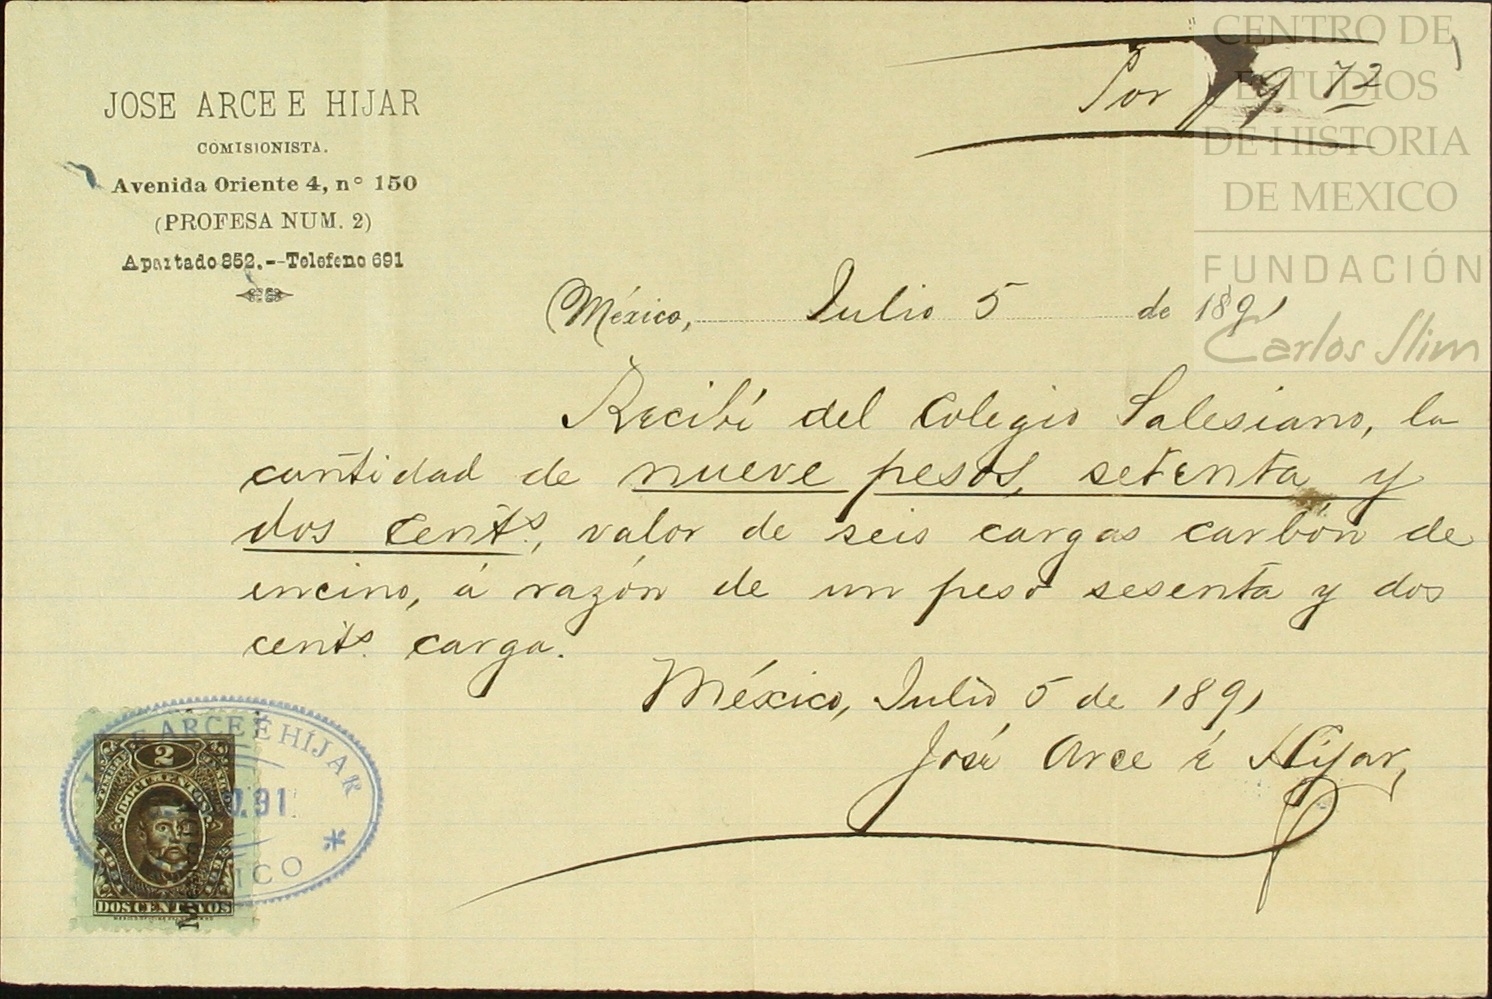 JOSE ARCE E HIJAR
COMISIONISTA.
Avenida Oriente 4, nº 150
(PROFESA NUM. 2)
Apartado 852.--Telefono 691
Por $9.72
México, Julio 5 de 1891
Recibí del Colegio Salesiano, la
cantidad de nueve pesos, setenta y
dos cents, valor de seis cargas carbón de
encino, á razón de un peso sesenta y dos
cents. carga.
México, Julio 5 de 1891
José Arce é Hijar,
ARCE É HÍJAR
91
2
DOCUMENTOS
DOS CENTAVOS
CENTRO DE
ESTUDIOS
DE HISTORIA
DE MEXICO
FUNDACIÓN
Carlos Slim